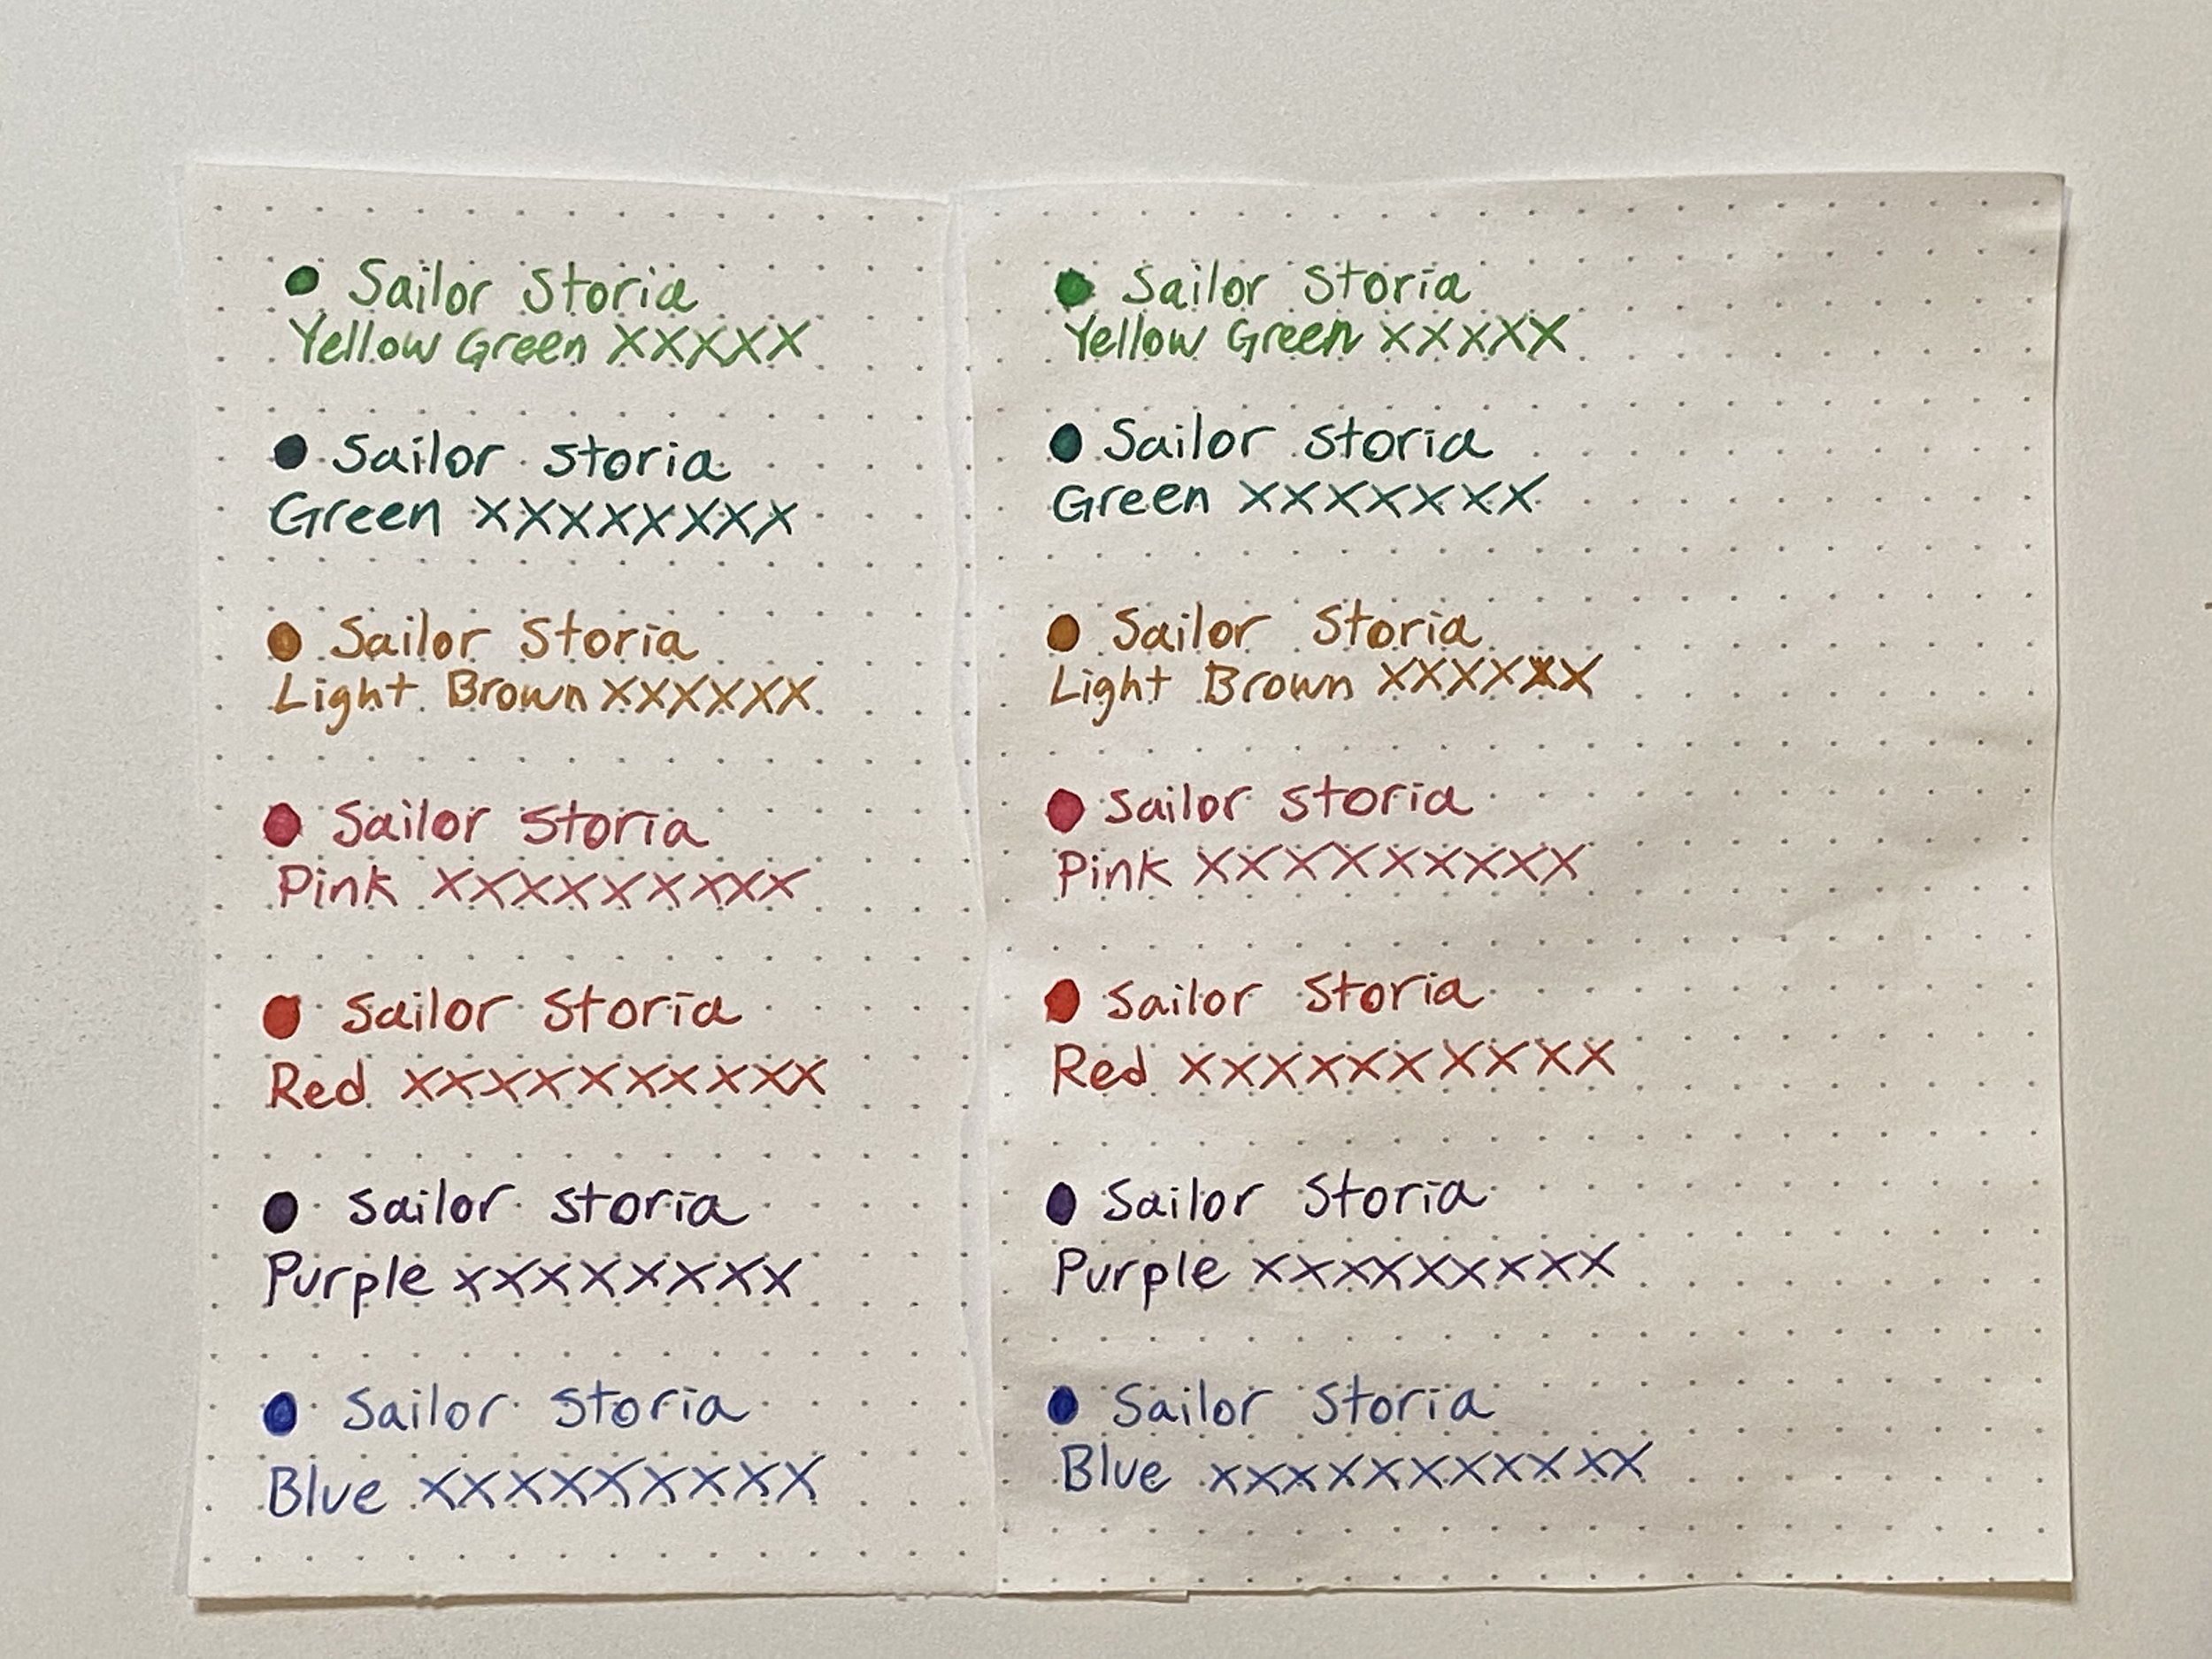 Sailor Storia
Yellow Green XXXXX
Sailor Storia
Green XXXXXXXX
Sailor Storia
Light Brown XXXXXX
Sailor Storia
Pink XXXXXXXXX
Sailor Storia
Red XXXXXXXXXX
Sailor Storia
Purple XXXXXXXX
Sailor Storia
Blue XXXXXXXXX
Sailor Storia
Yellow Green XXXXX
Sailor Storia
Green XXXXXXX
Sailor Storia
Light Brown XXXXXXX
Sailor Storia
Pink XXXXXXXXX
Sailor Storia
Red XXXXXXXXXX
Sailor Storia
Purple XXXXXXXXX
Sailor Storia
Blue XXXXXXXXXXX